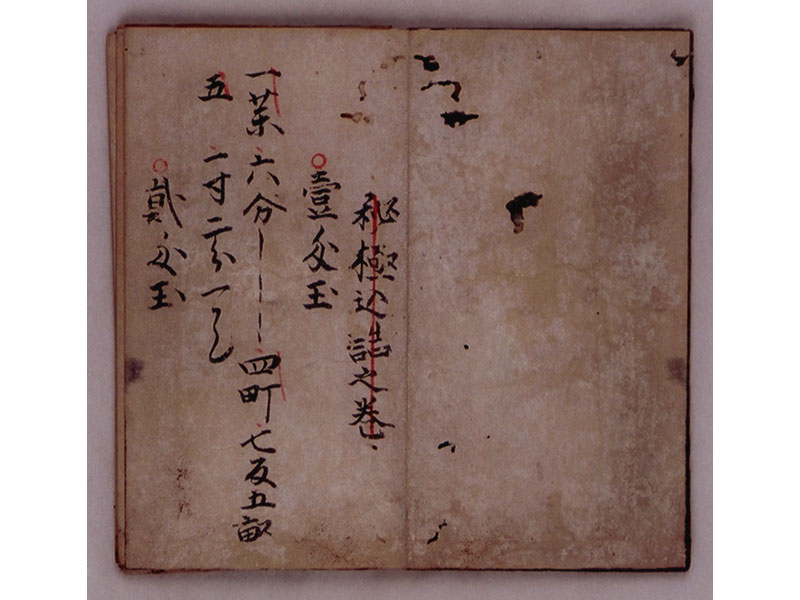 秘極込誌之巻
壹匁玉
一葉 六分 四町七反五畝
五 一寸二分一り
貳匁玉